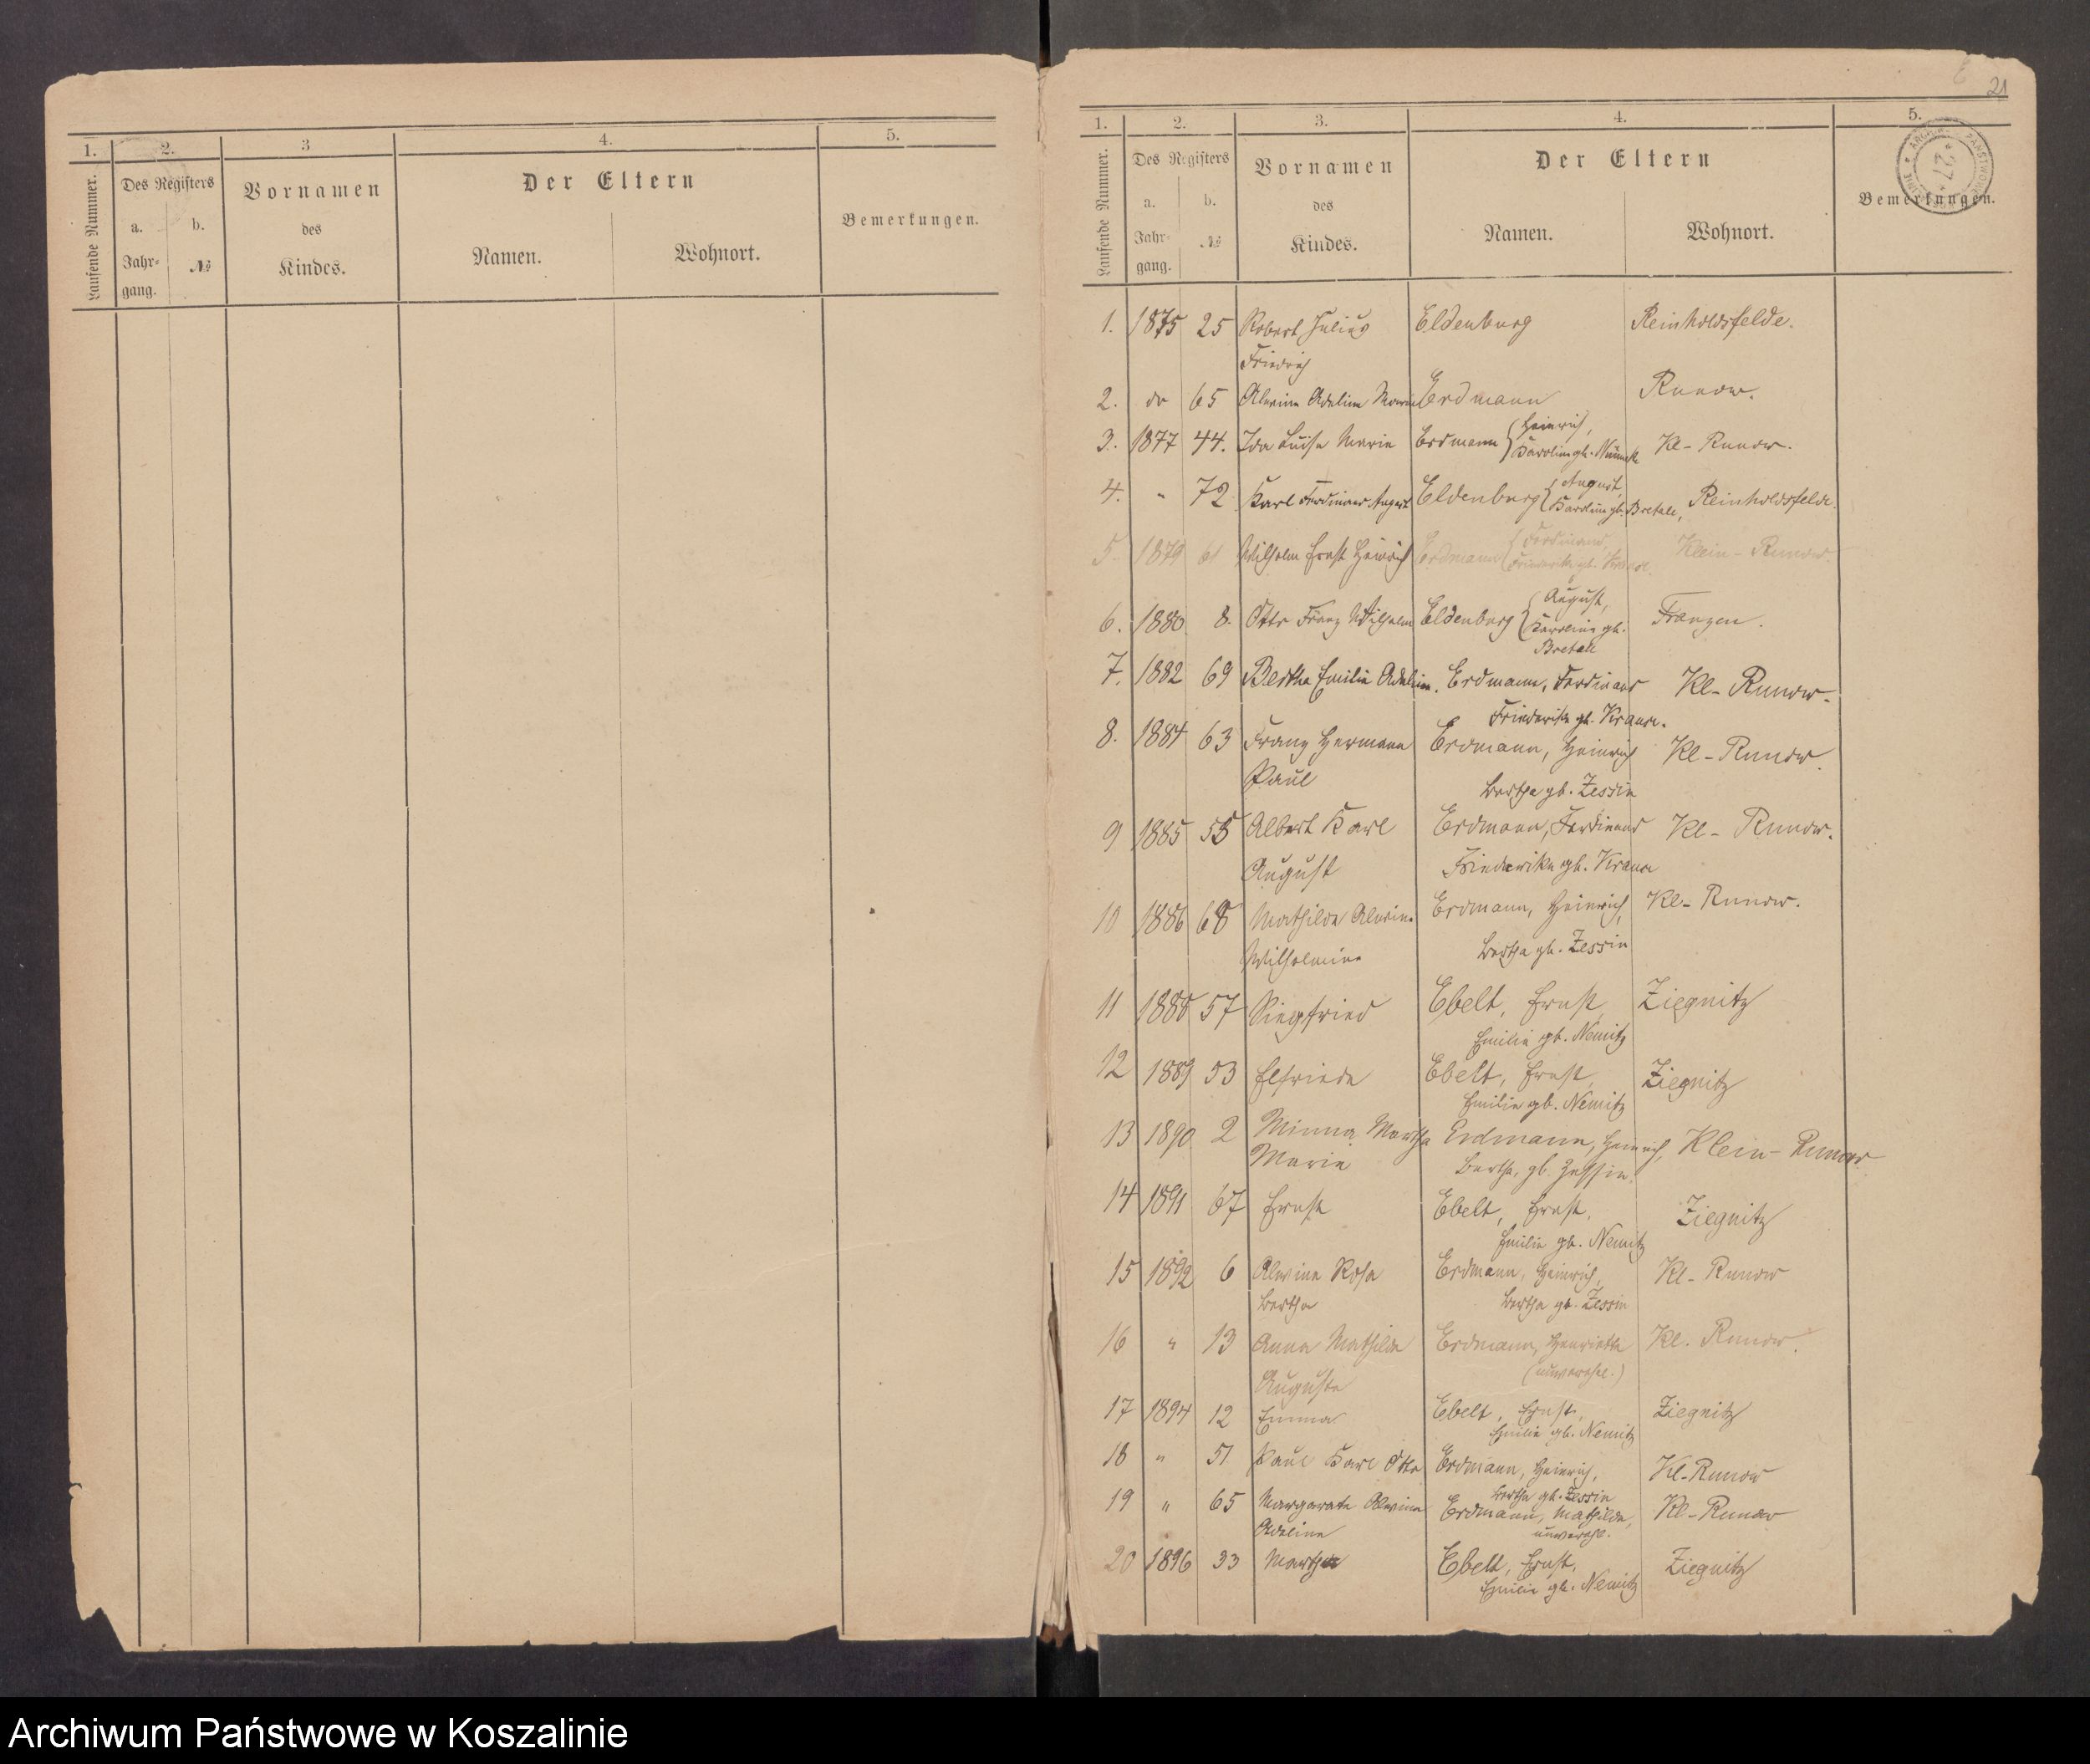 1. 2. 3 4. 5.
Laufende Nummer. Des Registers Vornamen Der Eltern
a. b. des Bemerkungen.
Jahr- № Kindes. Namen. Wohnort.
gang.
21
1. 2. 3. 4. 5.
Laufende Nummer. Des Registers Vornamen Der Eltern
a. b. des Bemerkungen.
Jahr- № Kindes. Namen. Wohnort.
gang.
27
1. 1875 25 Robert Julius Eldenburg Reinholdsfelde.
Friedrich
2. do 65 Alwine Adeline Erdmann Runow.
3. 1877 44. Ida Luise Marie Erdmann Heinrich, Kl-Runow.
Karoline gb.
4. " 72 Karl Ferdinand August Eldenburg August, Reinholdsfelde.
Karoline gb. Bretall,
5. 1879 61 Wilhelm Ernst Heinrich Erdmann Ferdinand, Klein-Runow.
Friederike gb. Krause.
6. 1880. 8. Otto Franz Wilhelm Eldenburg August, Franzen.
Karoline gb.
Bretall
7. 1882 69 Bertha Emilie Adeline. Erdmann, Ferdinand Kl-Runow.
Friederike gb. Krause.
8. 1884 63 Franz Hermann Erdmann, Heinrich Kl-Runow.
Paul Bertha gb. Zessin
9 1885 55 Albert Karl Erdmann, Ferdinand Kl-Runow.
August Friederike gb. Krause
10 1886 68 Mathilde Alwine Erdmann, Heinrich, Kl-Runow.
Wilhelmine Bertha gb. Zessin
11 1888 57 Siegfried Ebelt, Ernst, Ziegnitz
Emilie gb. Nemitz
12 1889 53 Elfriede Ebelt, Ernst, Ziegnitz
Emilie gb. Nemitz
13 1890 2 Minna Martha Erdmann, Heinrich, Klein-Runow
Marie Bertha, gb. Zessin.
14 1891 67 Ernst Ebelt, Ernst, Ziegnitz
Emilie gb. Nemitz
15 1892 6 Alwine Rosa Erdmann, Heinrich, Kl-Runow
Bertha Bertha gb. Zessin
16 " 13 Anna Mathilde Erdmann, Henriette Kl. Runow.
Auguste (unverehel.)
17 1894 12 Emma Ebelt, Ernst, Ziegnitz
Emilie gb. Nemitz
18 " 51 Paul Karl Otto Erdmann, Heinrich, Kl-Runow
Bertha gb. Zessin
19 " 65 Margarete Alwine Erdmann, Mathilde, Kl-Runow
Adeline unverehl.
20 1896 33 Martha Ebelt, Ernst, Ziegnitz
Emilie gb. Nemitz
Archiwum Państwowe w Koszalinie